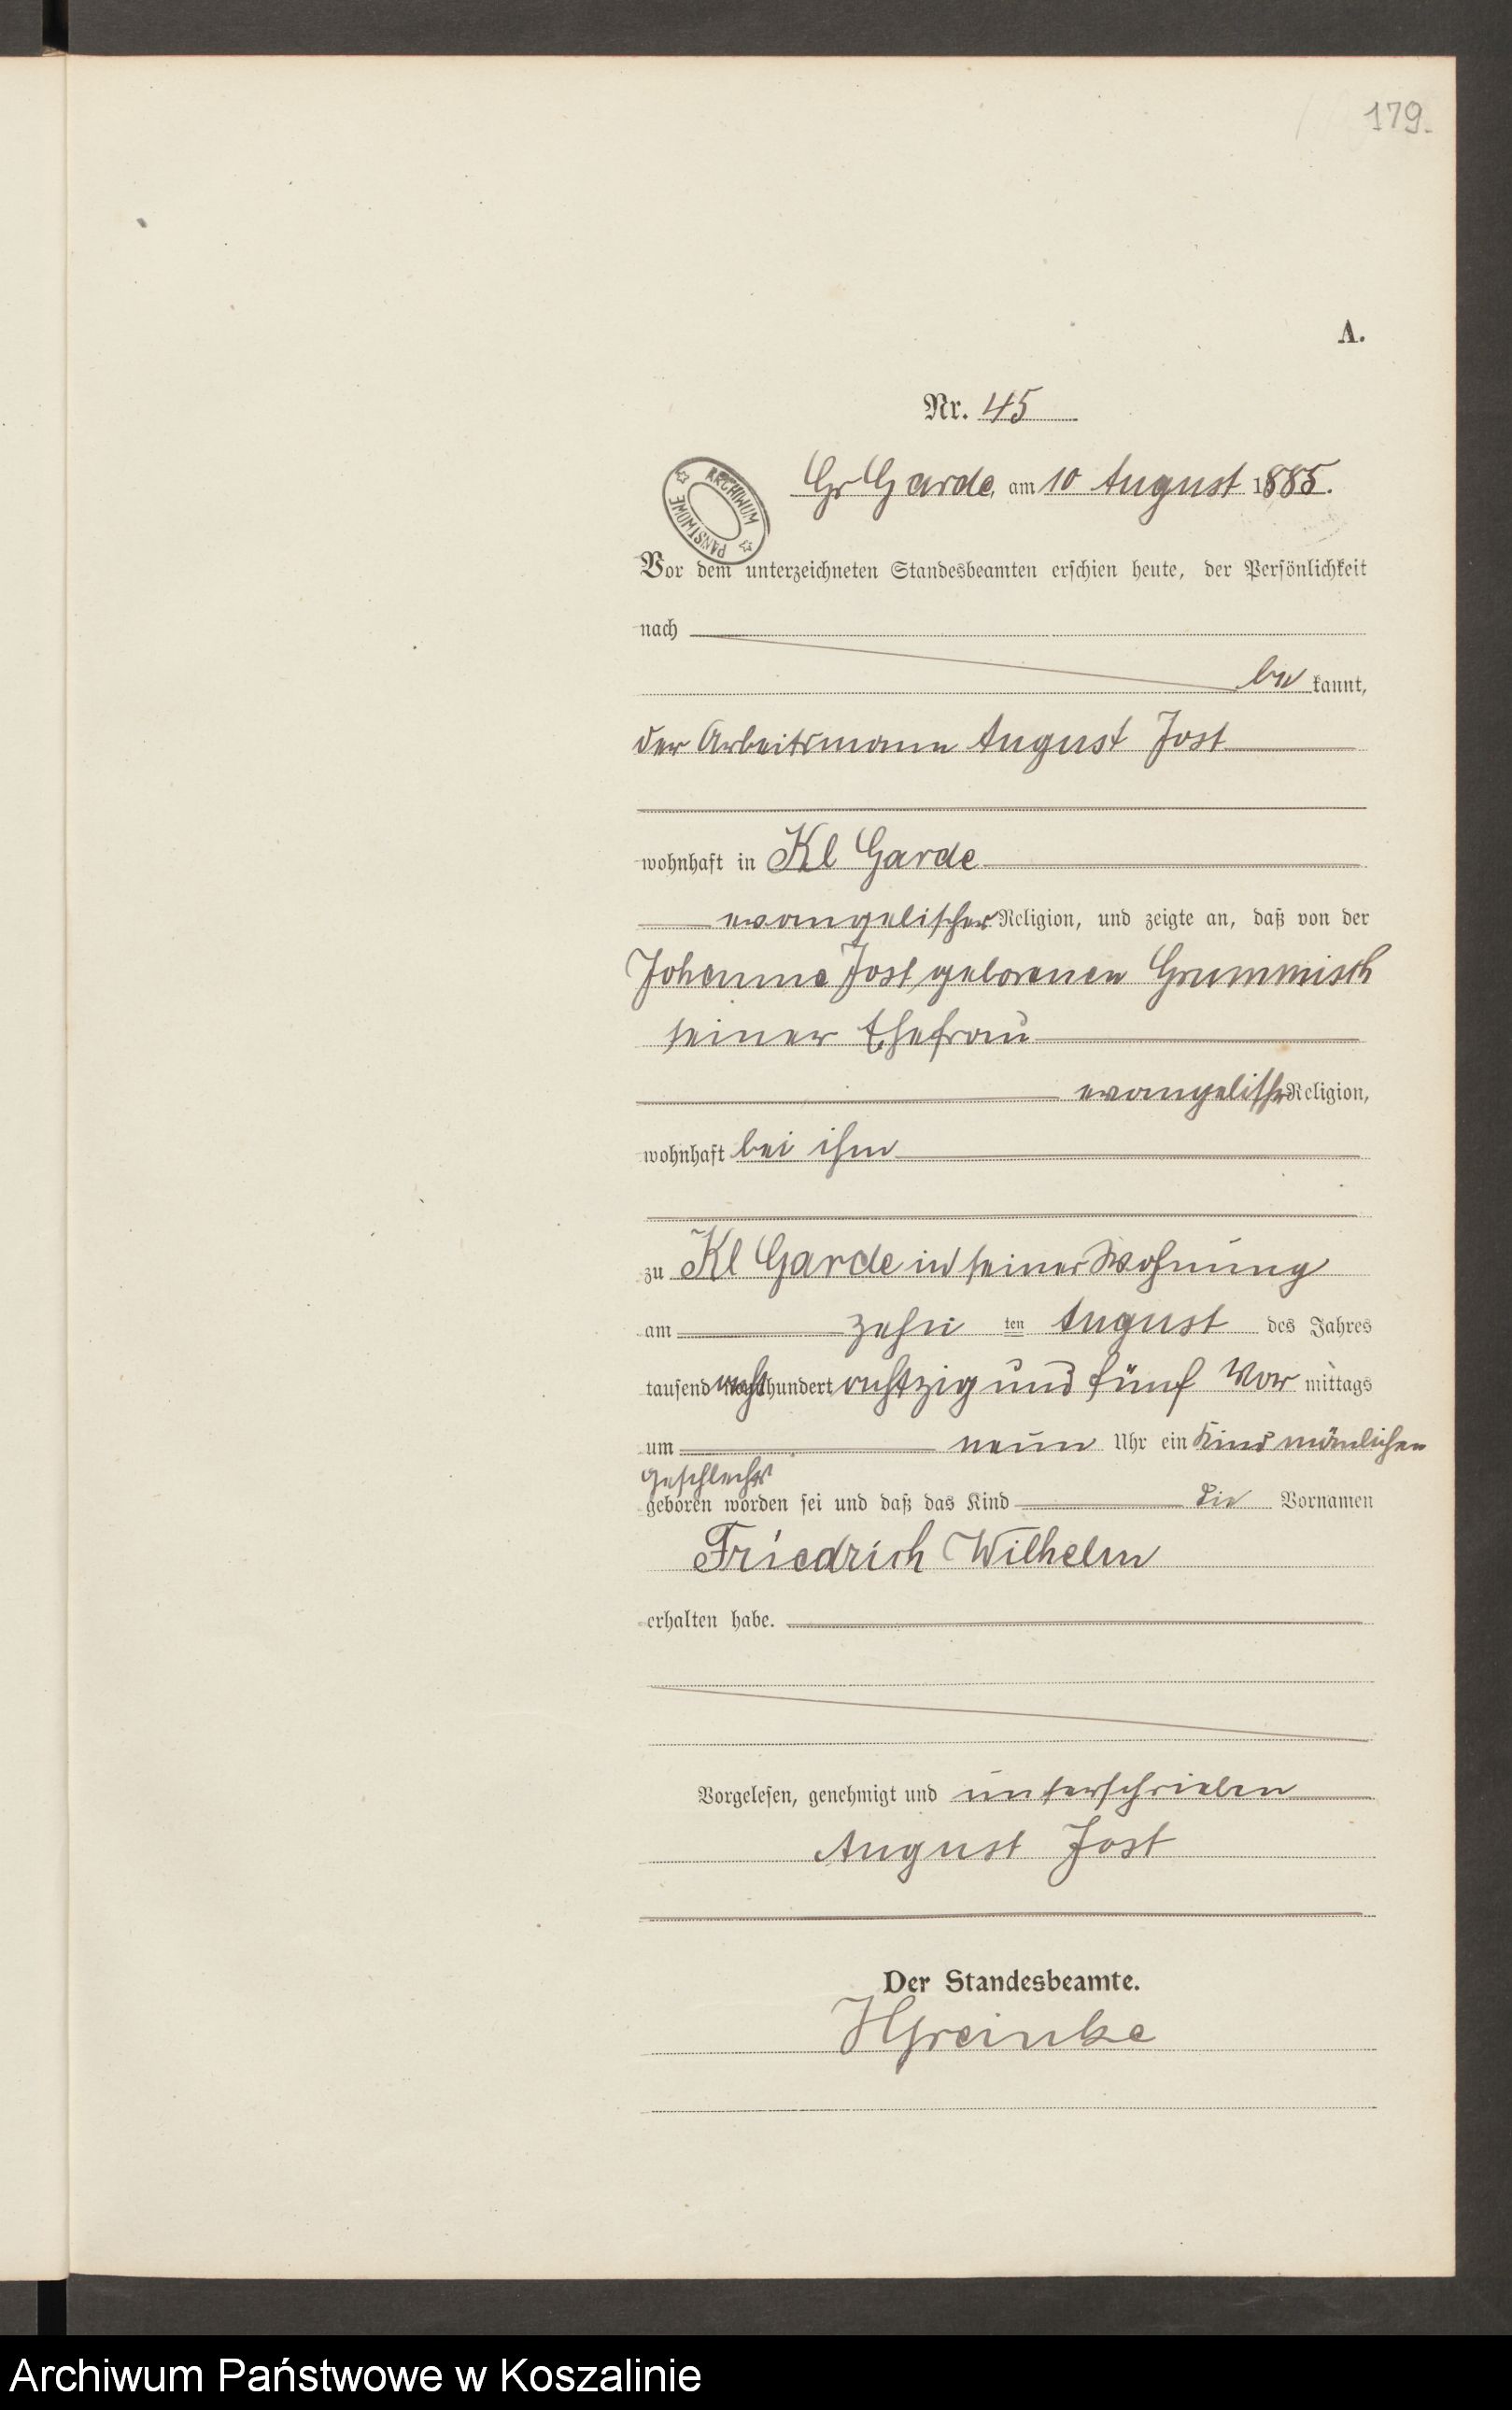 179.
A.
Nr. 45
ARCHIWUM PAŃSTWOWE
Gr Garde, am 10 August 1885.
Vor dem unterzeichneten Standesbeamten erschien heute, der Persönlichkeit
nach
be kannt,
der Arbeitsmann August Jost
wohnhaft in Kl Garde
evangelischer Religion, und zeigte an, daß von der
Johanne Jost geborenen Grummisch
seiner Ehefrau
evangelischer Religion,
wohnhaft bei ihm
zu Kl Garde in seiner Wohnung
am zehn ten August des Jahres
tausend acht hundert achtzig und fünf Vor mittags
um neun Uhr ein Kind mänlichen
Geschlechts
geboren worden sei und daß das Kind die Vornamen
Friedrich Wilhelm
erhalten habe.
Vorgelesen, genehmigt und unterschrieben
August Jost
Der Standesbeamte.
HGreinke
Archiwum Państwowe w Koszalinie